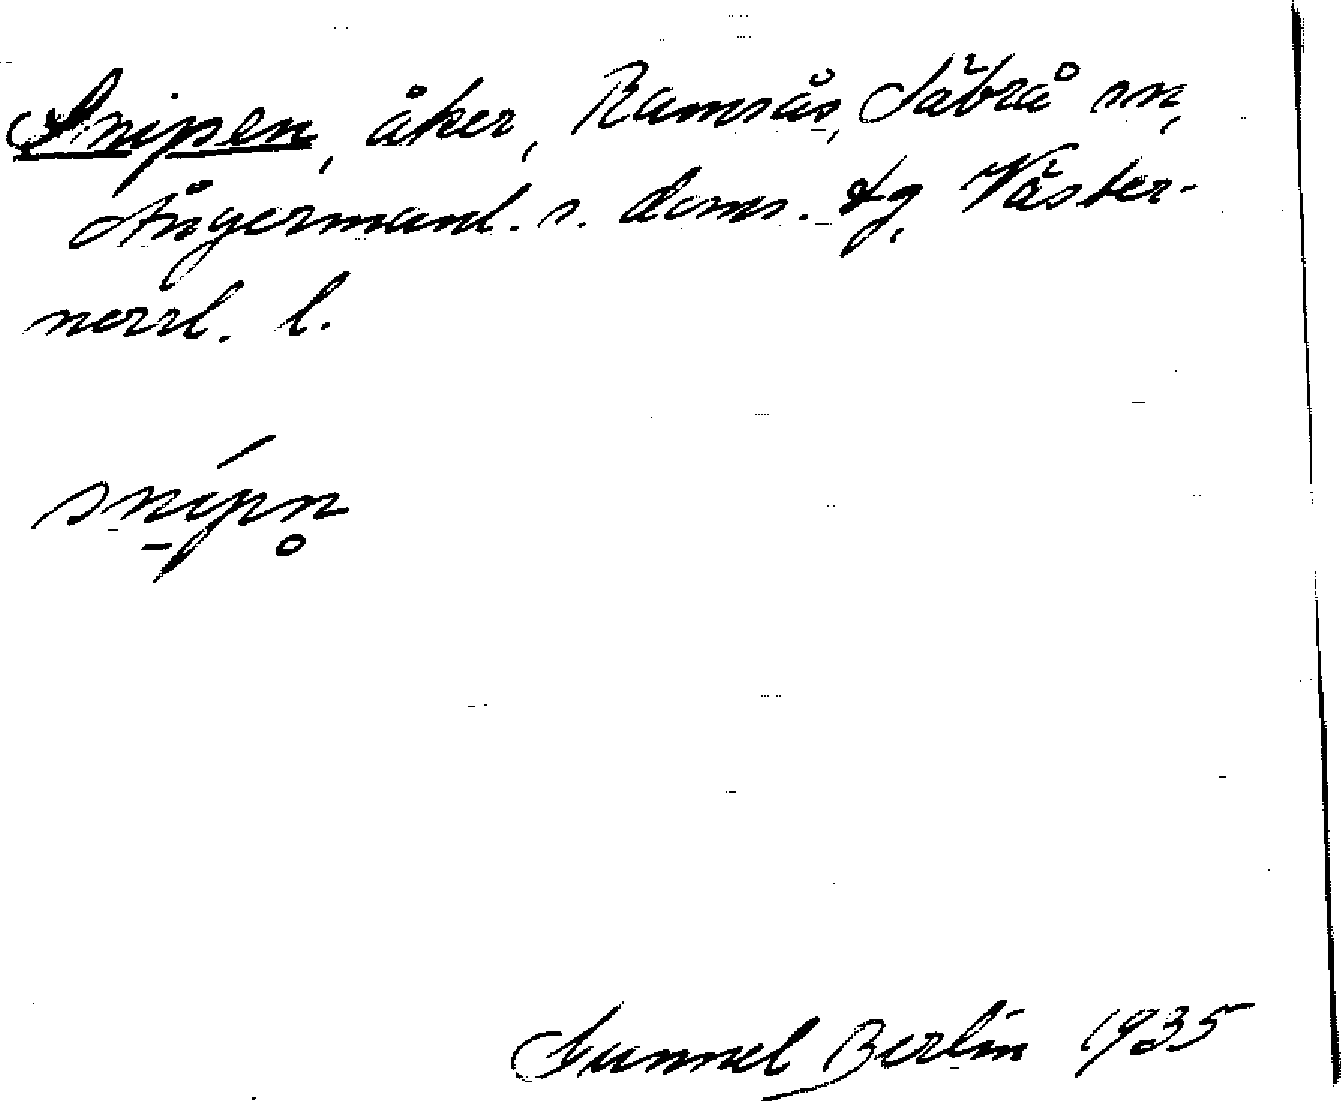 Snipen, åker, Ramsås, Säbrå sn,
Ångermanl. s. doms. tg, Väster-
norrl. l.
snípn̥
Gunnel Berlin 1935